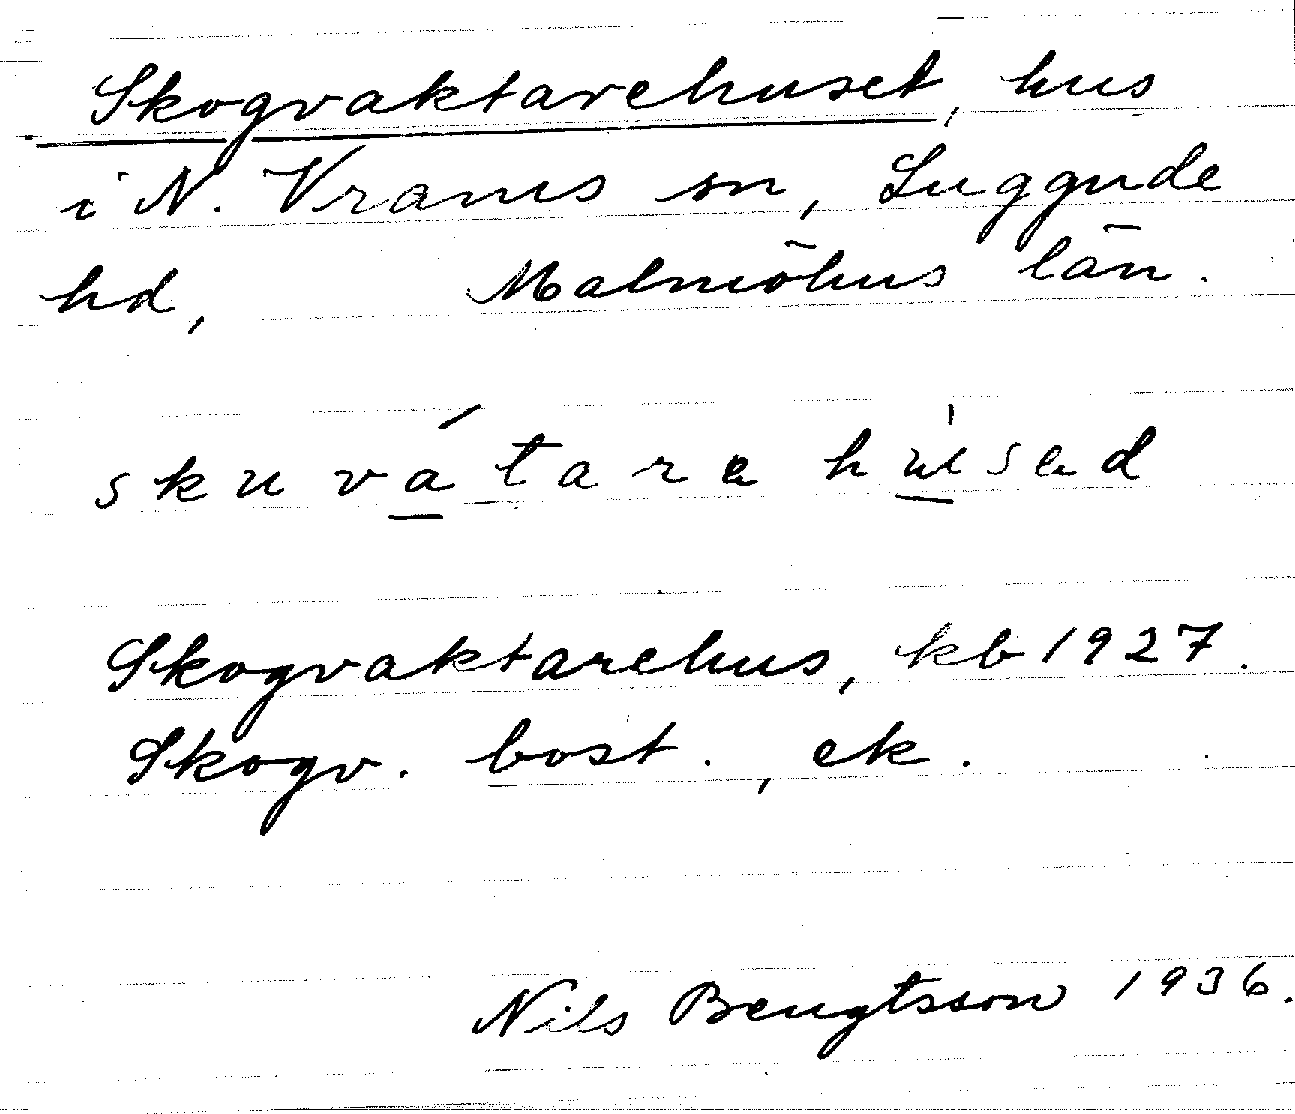 Skogvaktarehuset, hus
i N. Vrams sn, Luggude
hd, Malmöhus län.
skuvátara húsad
Skogvaktarehus, kb 1927.
Skogv. bost., ek.
Nils Bengtsson 1936.